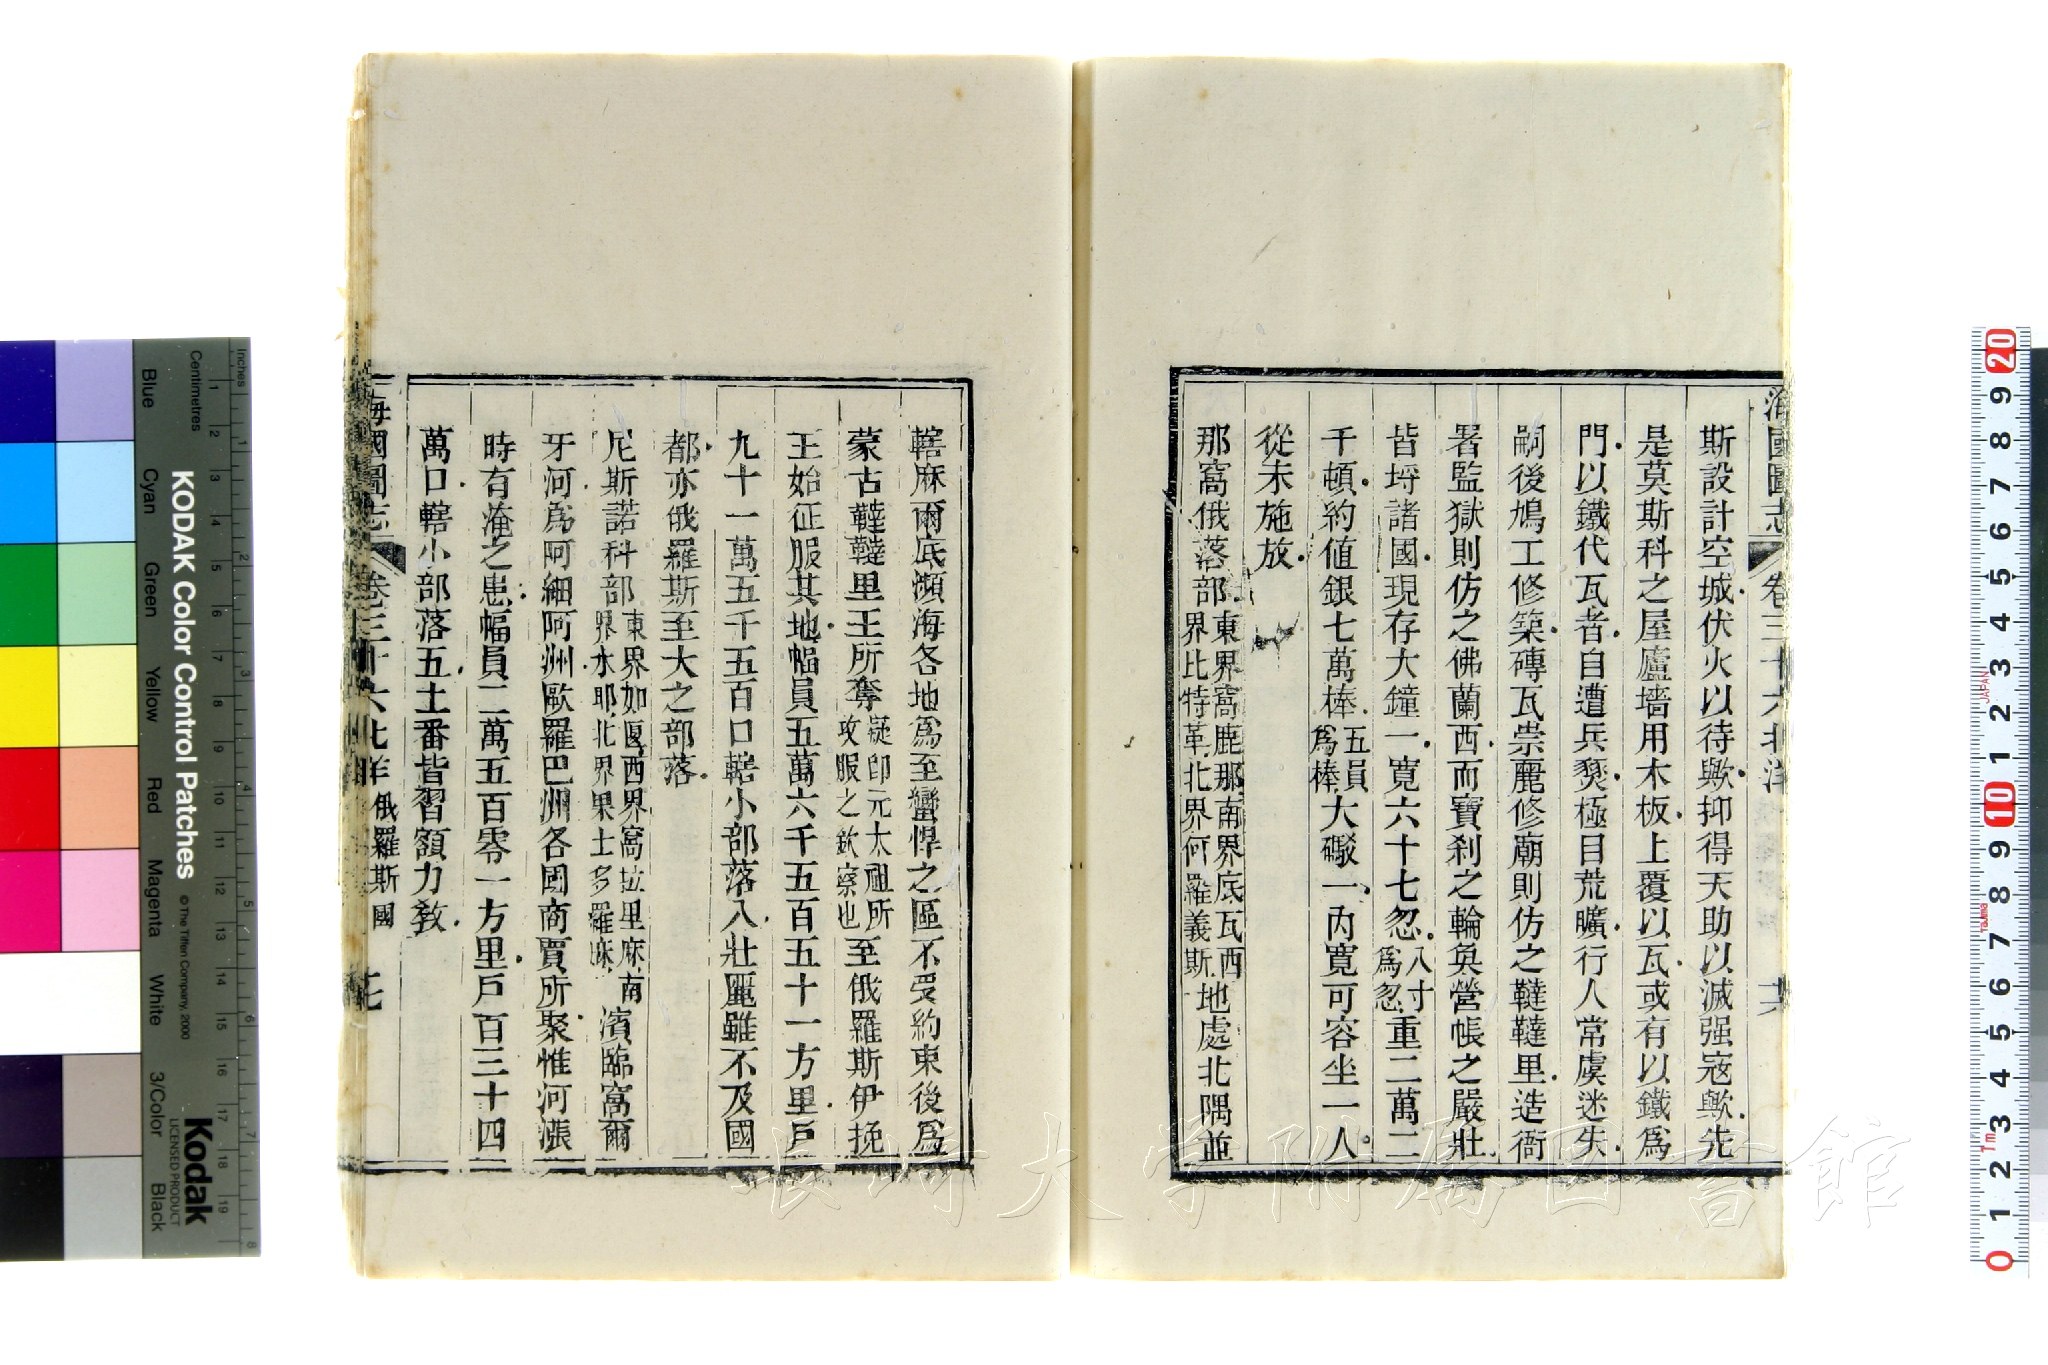 海國圖志 卷三十六北洋 六
斯設計空城伏火以待歟抑得天助以滅强寇歟先
是莫斯科之屋廬墻用木板上覆以瓦或有以鐵爲
門以鐵代瓦者自遭兵燹極目荒曠行人常虞迷失
嗣後鳩工修築磚瓦祟麗修廟則仿之韃韃里造衙
署監獄則仿之佛蘭西而寶刹之輪奐營帳之嚴壯
皆埒諸國現存大鐘一寬六十七忽八寸爲忽重二萬二
千頓約值銀七萬棒五員爲棒大礮一內寬可容坐一人
從未施放
那窩俄落部東界窩鹿那南界底瓦西界比特革北界何羅義斯地處北隅並
轄麻爾底瀕海各地爲至蠻悍之區不受約束後爲
蒙古韃韃里王所奪疑卽元太祖所攻服之欽察也至俄羅斯伊挽
王始征服其地幅員五萬六千五百五十一方里戶
九十一萬五千五百口轄小部落八壯麗雖不及國
都亦俄羅斯至大之部落
尼斯諾科部東界如匽西界窩拉里麻南界水耶北界果士多羅麻濱臨窩爾
牙河爲阿細阿洲歐羅巴洲各國商賈所聚惟河漲
時有淹之患幅員二萬五百零一方里戶百三十四
萬口轄小部落五土番皆習額力敎
海國圖志 卷三十六北洋 俄羅斯國 七
Inches
Centimetres
KODAK Color Control Patches
© The Tiffen Company, 2000
Kodak
LICENSED PRODUCT
Blue Cyan Green Yellow Red Magenta White 3/Color Black
長崎大学附属図書館